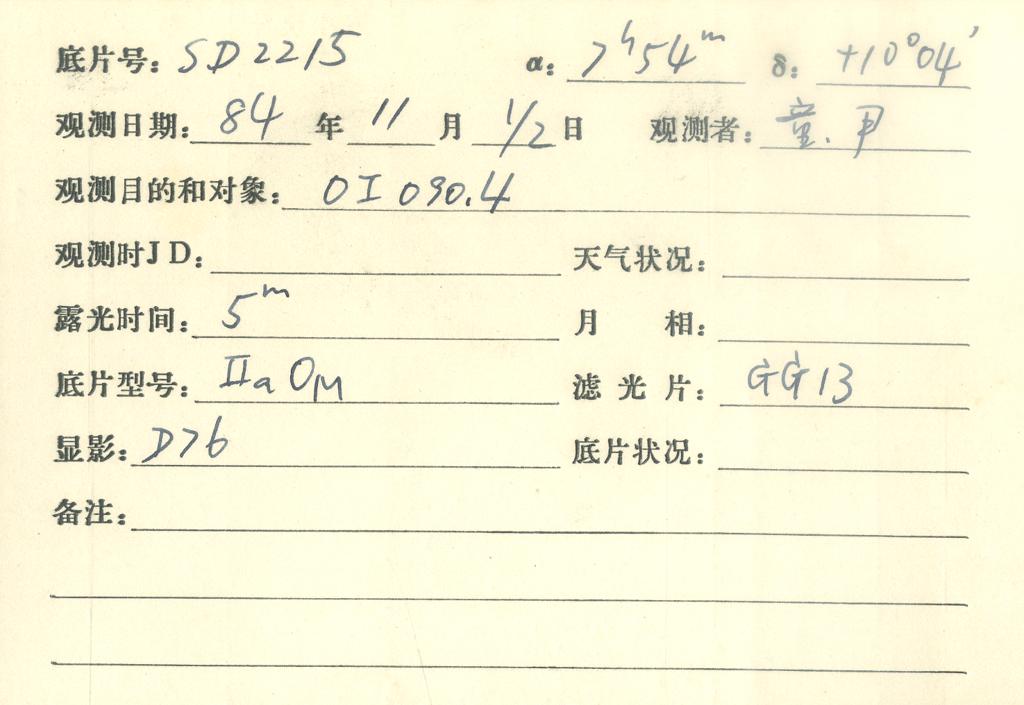 底片号: SD2215 α: 7ʰ54ᵐ δ: +10°04′
观测日期: 84 年 11 月 1/2 日 观测者: 童.甲
观测目的和对象: OI 090.4
观测时JD: 天气状况:
露光时间: 5ᵐ 月 相:
底片型号: IIaO 滤光片: GG13
显影: D76 底片状况:
备注: